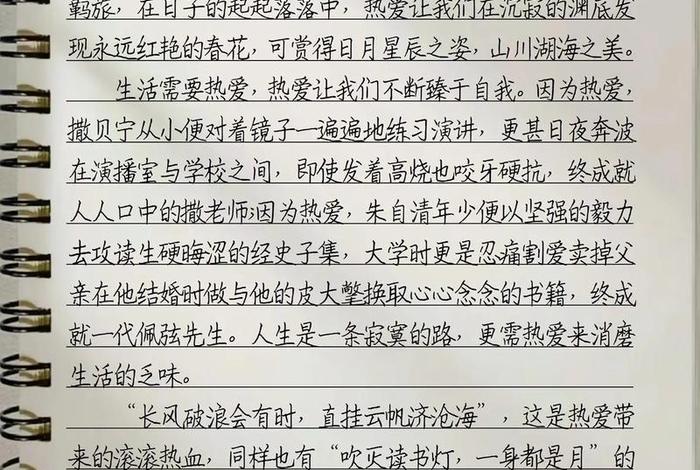 羁旅，在日子的起起落落中，热爱让我们在沉寂的渊底发
现永远红艳的春花，可赏得日月星辰之姿，山川湖海之美。
生活需要热爱，热爱让我们不断臻于自我。因为热爱，
撒贝宁从小便对着镜子一遍遍地练习演讲，更甚日夜奔波
在演播室与学校之间，即使发着高烧也咬牙硬抗，终成就
人人口中的撒老师；因为热爱，朱自清年少便以坚强的毅力
去攻读生硬晦涩的经史子集，大学时更是忍痛割爱卖掉父
亲在他结婚时做与他的皮大氅换取心心念念的书籍，终成
就一代佩弦先生。人生是一条寂寞的路，更需热爱来消磨
生活的乏味。
“长风破浪会有时，直挂云帆济沧海”，这是热爱带
来的滚滚热血，同样也有“吹灭读书灯，一身都是月”的